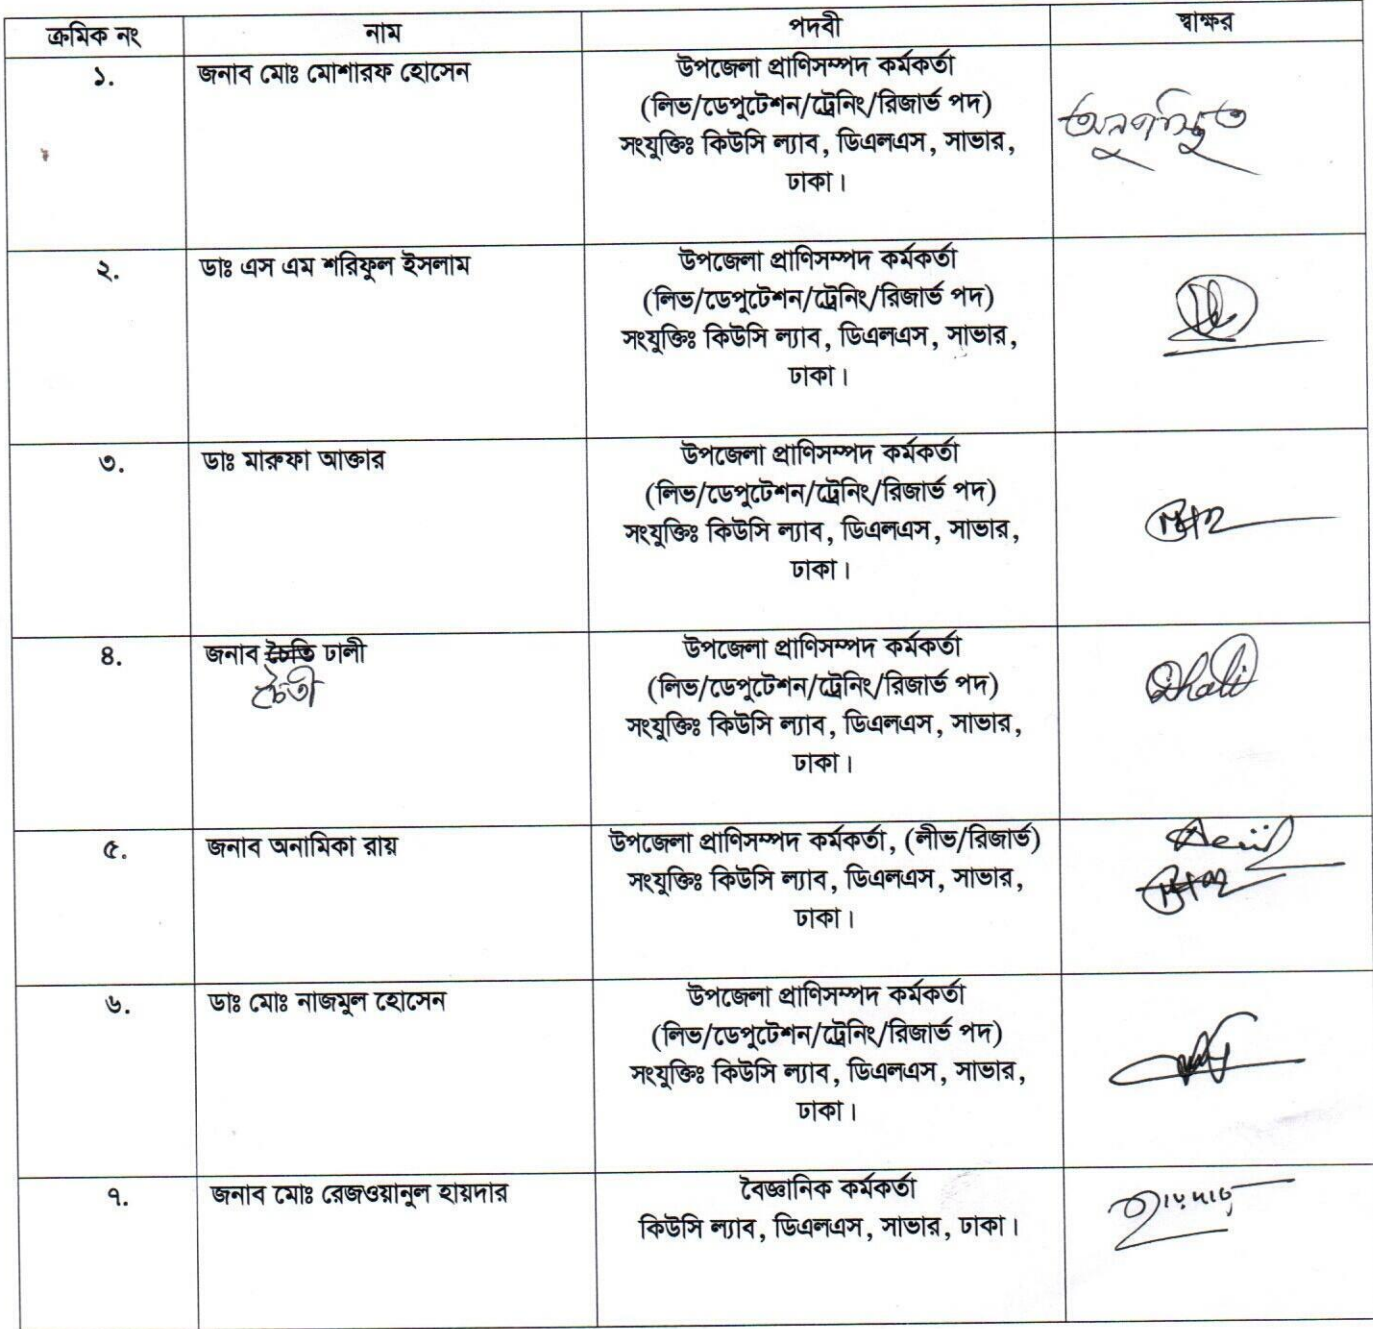 ক্রমিক নং নাম পদবী স্বাক্ষর
১. জনাব মোঃ মোশারফ হোসেন উপজেলা প্রাণিসম্পদ কর্মকর্তা
(লিভ/ডেপুটেশন/ট্রেনিং/রিজার্ভ পদ)
সংযুক্তিঃ কিউসি ল্যাব, ডিএলএস, সাভার,
ঢাকা।
অনুপস্থিত
২. ডাঃ এস এম শরিফুল ইসলাম উপজেলা প্রাণিসম্পদ কর্মকর্তা
(লিভ/ডেপুটেশন/ট্রেনিং/রিজার্ভ পদ)
সংযুক্তিঃ কিউসি ল্যাব, ডিএলএস, সাভার,
ঢাকা।
৩. ডাঃ মারুফা আক্তার উপজেলা প্রাণিসম্পদ কর্মকর্তা
(লিভ/ডেপুটেশন/ট্রেনিং/রিজার্ভ পদ)
সংযুক্তিঃ কিউসি ল্যাব, ডিএলএস, সাভার,
ঢাকা।
৪. জনাব চৈতি ঢালী উপজেলা প্রাণিসম্পদ কর্মকর্তা
চৈতী
(লিভ/ডেপুটেশন/ট্রেনিং/রিজার্ভ পদ)
সংযুক্তিঃ কিউসি ল্যাব, ডিএলএস, সাভার,
ঢাকা।
Dhali
৫. জনাব অনামিকা রায় উপজেলা প্রাণিসম্পদ কর্মকর্তা, (লীভ/রিজার্ভ)
সংযুক্তিঃ কিউসি ল্যাব, ডিএলএস, সাভার,
ঢাকা।
৬. ডাঃ মোঃ নাজমুল হোসেন উপজেলা প্রাণিসম্পদ কর্মকর্তা
(লিভ/ডেপুটেশন/ট্রেনিং/রিজার্ভ পদ)
সংযুক্তিঃ কিউসি ল্যাব, ডিএলএস, সাভার,
ঢাকা।
৭. জনাব মোঃ রেজওয়ানুল হায়দার বৈজ্ঞানিক কর্মকর্তা
কিউসি ল্যাব, ডিএলএস, সাভার, ঢাকা।
হায়দার